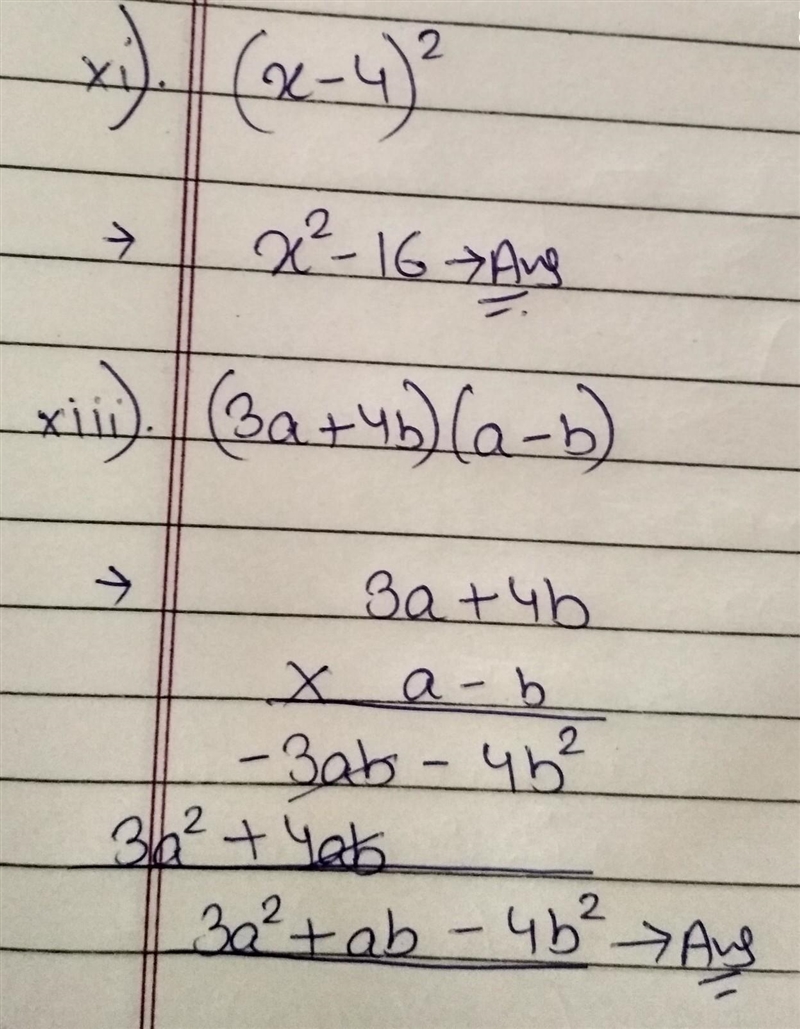 xi). (x-4)²
→ x²-16 → Ans
xiii). (3a+4b)(a-b)
→ 3a+4b
× a-b
-3ab-4b²
3a²+4ab
3a²+ab-4b² → Ans